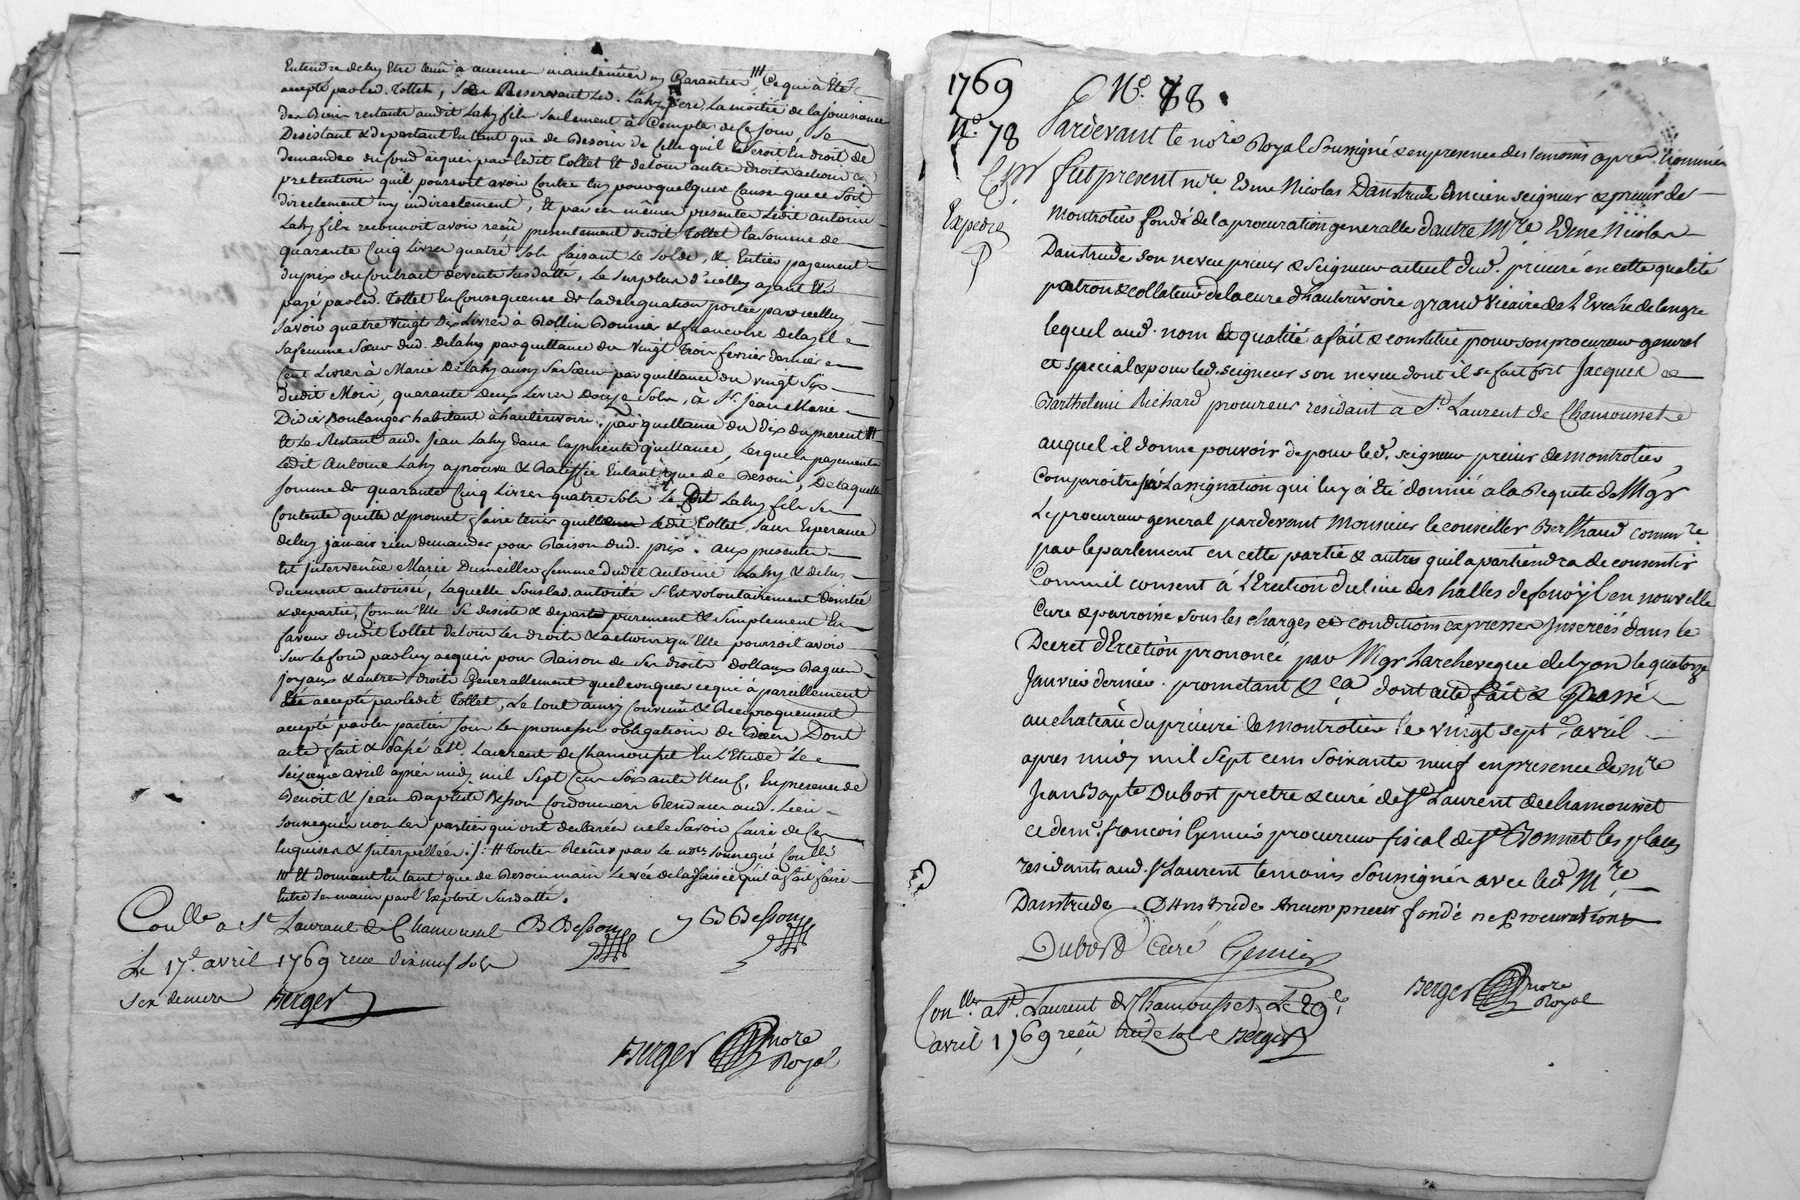 Entendre deluy Etre tenu a aucunne maintenüe ny Garantie /// Ce qui à Eté
accepté par led. Tollet, sous Reserve dud. Lahy pere, la moitié de la Jouissance
des Biens restants audit Lahy fils seulement à Compte de ce Jour, se
Desistant & departant En tant que de Besoin de Celle quil seroit En droit de
demander du fond acquis par ledit Tollet Et de tous autres droits actions &
pretention quil pourroit avoir Contre luy pour quelques Causes que ce Soit
directement ny indirectement, Et par ces mêmes presentes Ledit antoine
Lahy fils reconnoit avoir reçû presentement dudit Tollet la Somme de
quarante Cinq Livres quatre Sols faisant Le Solde, & Entier payement
du prix du Contrait de vente susdatté, Le Surplus d'icelluy ayant Eté
payé par led. Tollet En Consequence de la delegation portée par icelluy
Savoir quatre vingt Dix Livres à Rollin Bonnier & francoise delaya
sa femme Sœur dud. Delahy par quittance du Vingt Trois fevrier dernier
Cent Livres à Marie Delahy aussy sa Sœur par quittance du vingt Six
Dudit Mois, quarante deux Livres Douze Sols, à Sr. Jean Marie
Didier Boulanger habitant à hauterivoire, par quittance du dix du present
Et Le Restant aud. Jean Lahy dans la presente quittance, Lesquels payements
Ledit Antoine Lahy aprouve & Ratiffie En tant que de Besoin, De laquelle
somme de quarante Cinq Livres quatre Sols Le Dit Lahy fils se
Contente quitte & promet faire tenir quitte Ledit Tollet, Sans Esperance
de luy jamais rien demander pour Raison dud. prix. aux presentes
Est Intervenue Marie Dumeillier femme dudit Antoine Lahy & de luy
Duement autorisée, Laquelle Sous lad. autorité S'est volontairement desistée
& departie, Comm'Elle Se desiste & departe purement & Simplement En
faveur dudit Tollet De tous les droits & actions qu'Elle pourroit avoir
Sur Le fond par luy acquis pour Raison de Ses droits dottaux Bagues
joyaux & autres droits Generallement quelconques ce qui à pareillement
Eté accepté par ledit Tollet, Le tout ainsy Convenu & Reciproquement
accepté par les parties sous Les promesses obligations de Biens Dont
acte fait & Passé à St. Laurent de Chamousset En L'Etude Le
Seizieme avril après midy mil Sept Cent Soixante Neuf, En presence de
Benoit & Jean Baptiste Besson Cordonniers Residans aud. Lieu
soussignés non les parties qui ont declarée ne le Savoir faire de Ce
Enquises & Interpellées ./. // Toutes Reçûes par le nore. Soussigné Coulle
/// Et donnant En tant que de Besoin main Levée de la Saisie qu'il a fait faire
Entre Ses mains par l'Exploit Susdatté.
Conlle a St Laurant de Chamousset B Besson J B Besson
Le 17e. avril 1769 reçu dix neuf Sols
Six deniers Berger
Berger nore
Royal
1769 No. 88
No. 78 Pardevant le nore Royal Soussigné & en presence des temoins après nommés
fut present mre. Edme Nicolas Danstrude Ancien seigneur & prieur de
Expedié Montrotier fondé de la procuration generalle d'autre Mre. Edme Nicolas
Danstrude son neveu prieur & Seigneur actuel dud. prieuré en cette qualité
patron & collateur de la cure d'hauterivoire grand Vicaire de l'Eveché de langre
lequel aud. nom & qualité a fait & constitué pour son procureur general
et special & pour led. seigneur son neveu dont il se fait fort Jacques
Barthelemi Richard procureur residant a St. Laurent de Chamousset
auquel il donne pouvoir de pour led. seigneur prieur de montrotier,
Comparoitre sur L'assignation qui luy a Eté donnée a la Requete de Mgr
Le procureur general pardevant Monsieur le conseiller Berthaud commre.
par le parlement en cette partie & autres quil apartiendra de consentir
Comm'il consent à l'Erection du lieu des halles de fenoÿl en nouvelle
Cure & parroisse sous les charges et conditions expresses Inserées dans le
Decret d'Erection prononcé par Mgr L'archeveque de Lyon le quatorze
Janvier dernier. prometant & ca dont acte fait & Passé
au chateau du prieuré de montrotier le vingt sept e. avril
apres midy mil Sept cens Soixante neuf en presence de mre
Jean Bapte Dubost pretre & curé de St Laurent de chamousset
et de me. françois Genier procureur fiscal de St Bonnet les places
residants aud. St Laurent temoins Soussignés avec led. Mre
Danstrude. Danstrude Ancien prieur fondé de procuration
Dubost Curé Genier
Berger nore
Royal
Conlle. a St. Laurent de Chamousset Le 29e.
avril 1769 reçû treize sols Berger